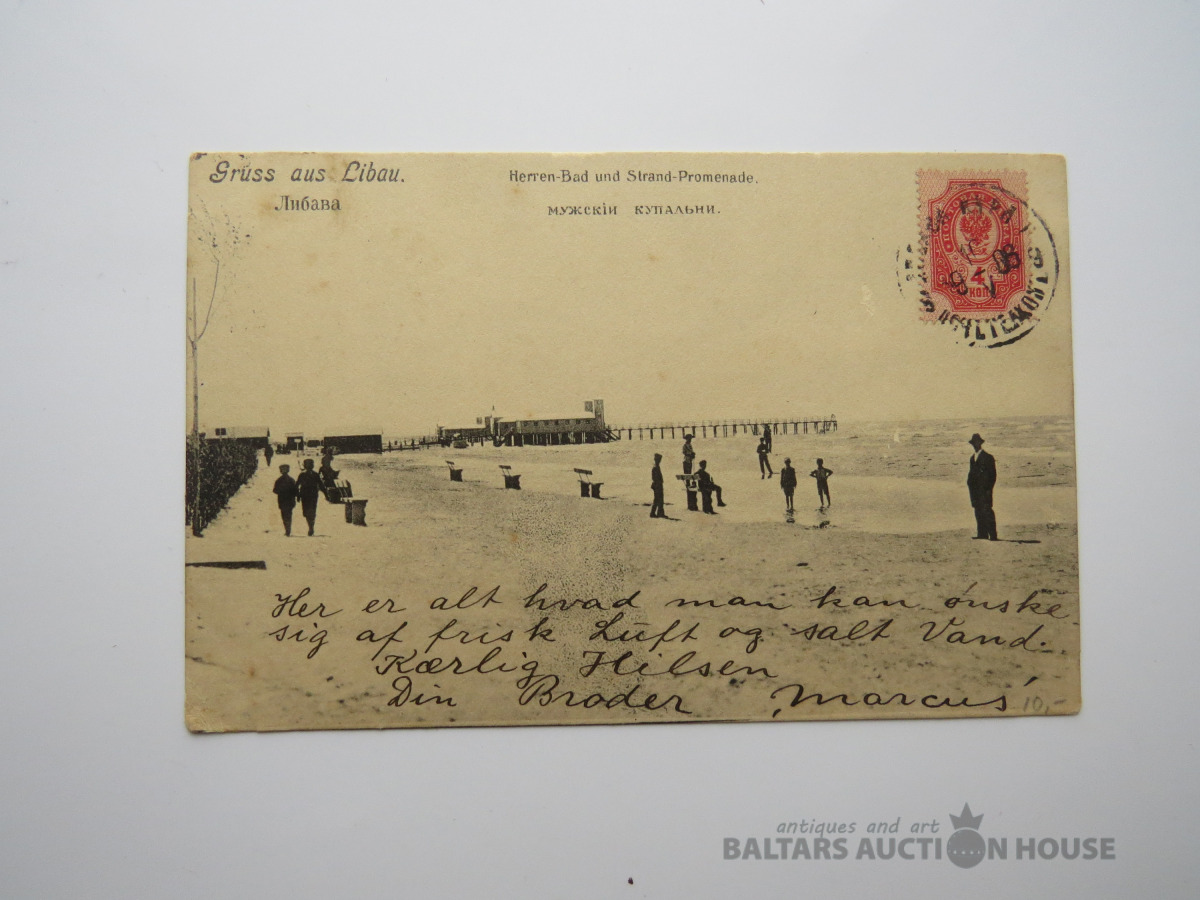 Gruss aus Libau.
Либава
Herren-Bad und Strand-Promenade.
МУЖСКІИ КУПАЛЬНИ.
4
КОП
Her er alt hvad man kan ønske
sig af frisk Luft og salt Vand.
Kærlig Hilsen
Din Broder Marcus
10,-
antiques and art
BALTARS AUCTION HOUSE